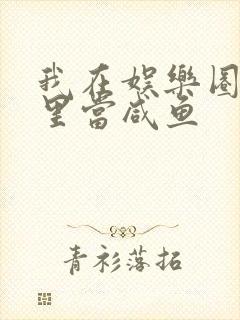 我在娱樂圈
里當咸鱼
青衫落拓